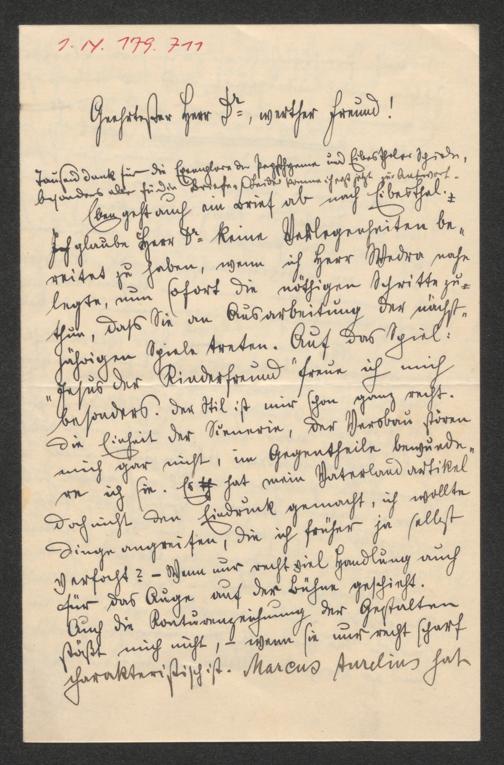 1. N. 179.711
Geehrtester Herr Dr., werther Freund!
Tausend Dank für die Exemplare der Passthymne und Eibesthaler Spiele,
besonders aber für die Briefe. Leider komme ich erst jetzt zur Antwort.
Eben geht auch ein Brief ab nach Eibesthal.
Ich glaube Herr Dr. keine Verlegenheiten be-
reitet zu haben, wenn ich Herr Wedra nahe
legte, nun sofort die nöthigen Schritte zu
thun, daß Sie an Ausarbeitung der nächst-
jährigen Spiele treten. Auf das Spiel:
"Jesus der Kinderfreund" freue ich mich
besonders. Der Stil ist mir schon ganz recht.
Die Einheit der Scenerie, der Versbau stören
mich gar nicht, im Gegentheile bewunde-
re ich sie. Es hat mein Vaterlandartikel
doch nicht den Eindruck gemacht, ich wollte
Dinge angreifen, die ich früher ja selbst
verfocht? - Wenn nur recht viel Handlung auch
für das Auge auf der Bühne geschieht.
Auch die Konturenzeichnung der Gestalten
stößt mich nicht, - wenn sie nur recht scharf
charakteristisch ist. Marcus Aurelius hat